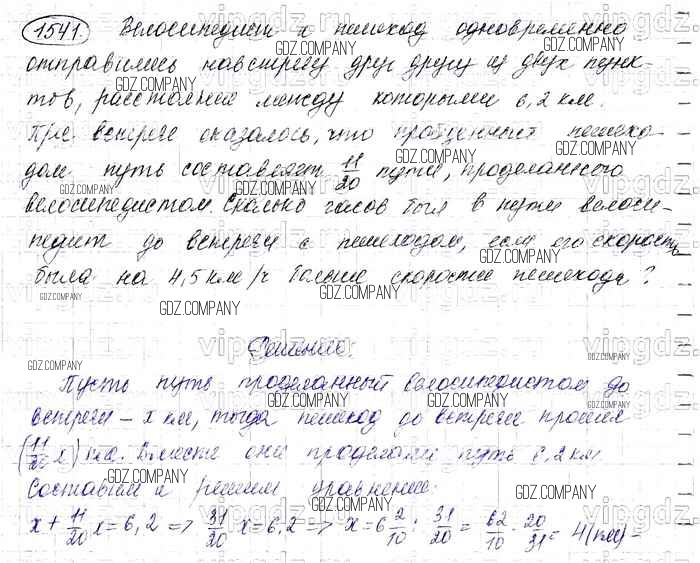 1541. Велосипедист и пешеход одновременно
отправились навстречу друг другу из двух пунк-
тов, расстояние между которыми 6,2 км.
При встрече оказалось, что пройденный пешехо-
дом путь составляет 11/20 пути, проделанного
велосипедистом. Сколько часов был в пути велоси-
педист до встречи с пешеходом, если его скорость
была на 4,5 км/ч больше скорости пешехода?
Решение:
Пусть путь проделанный велосипедистом до
встречи – x км, тогда пешеход до встречи прошел
(11/20 x) км. Вместе они проделали путь 6,2 км.
Составим и решим уравнение:
x + 11/20 x = 6,2 => 31/20 x = 6,2 => x = 6 2/10 : 31/20 = 62/10 · 20/31 = 4 (км) –